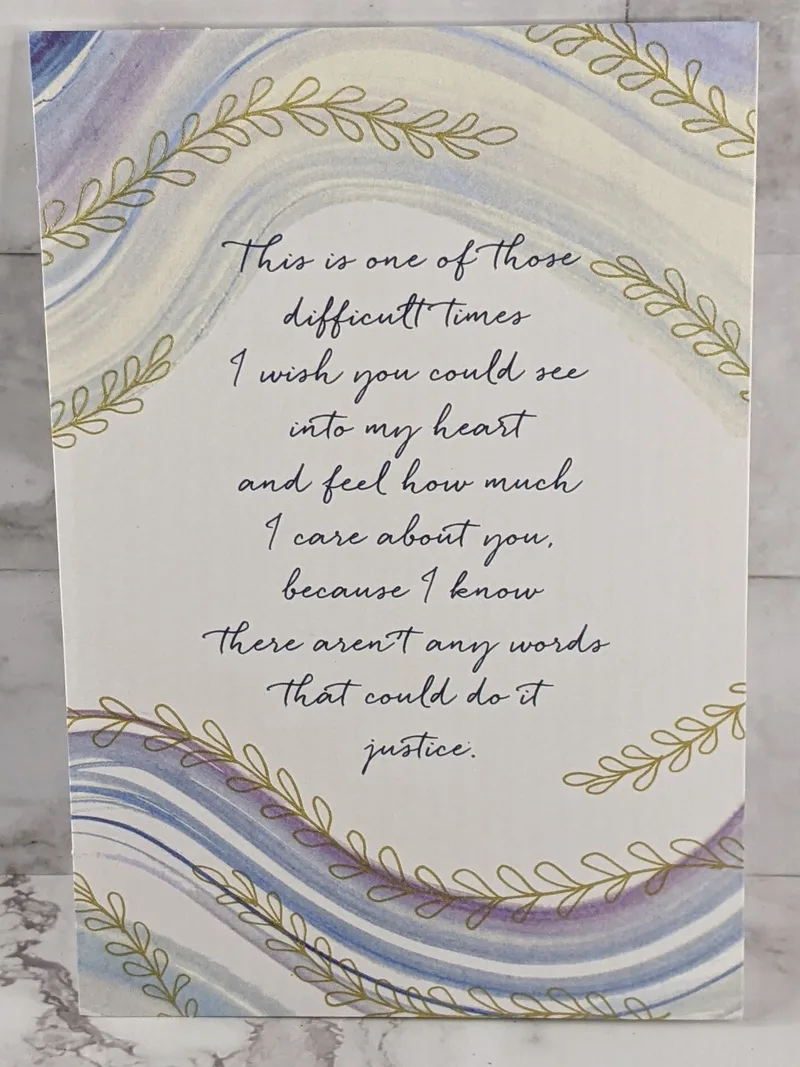 This is one of those
difficult times
I wish you could see
into my heart
and feel how much
I care about you,
because I know
there aren't any words
that could do it
justice.